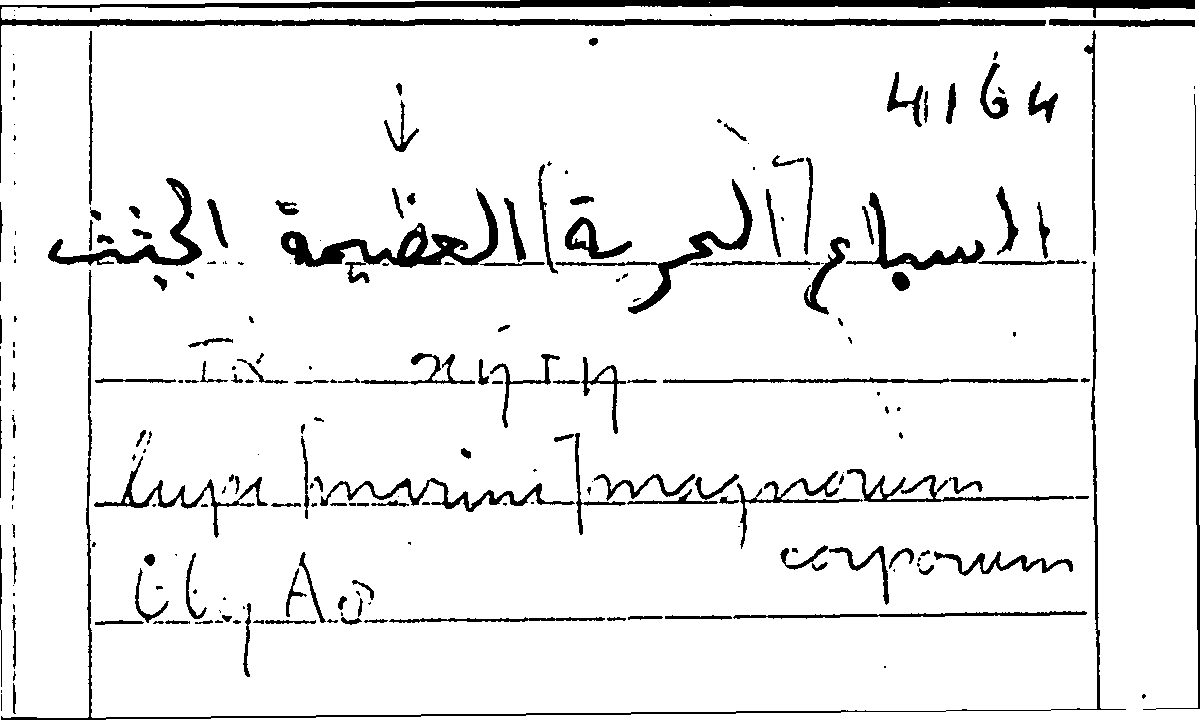 4164
↓
السباع [البحرية] العظيمة الجثث
τὰ κήτη
lupi [marini] magnorum
corporum